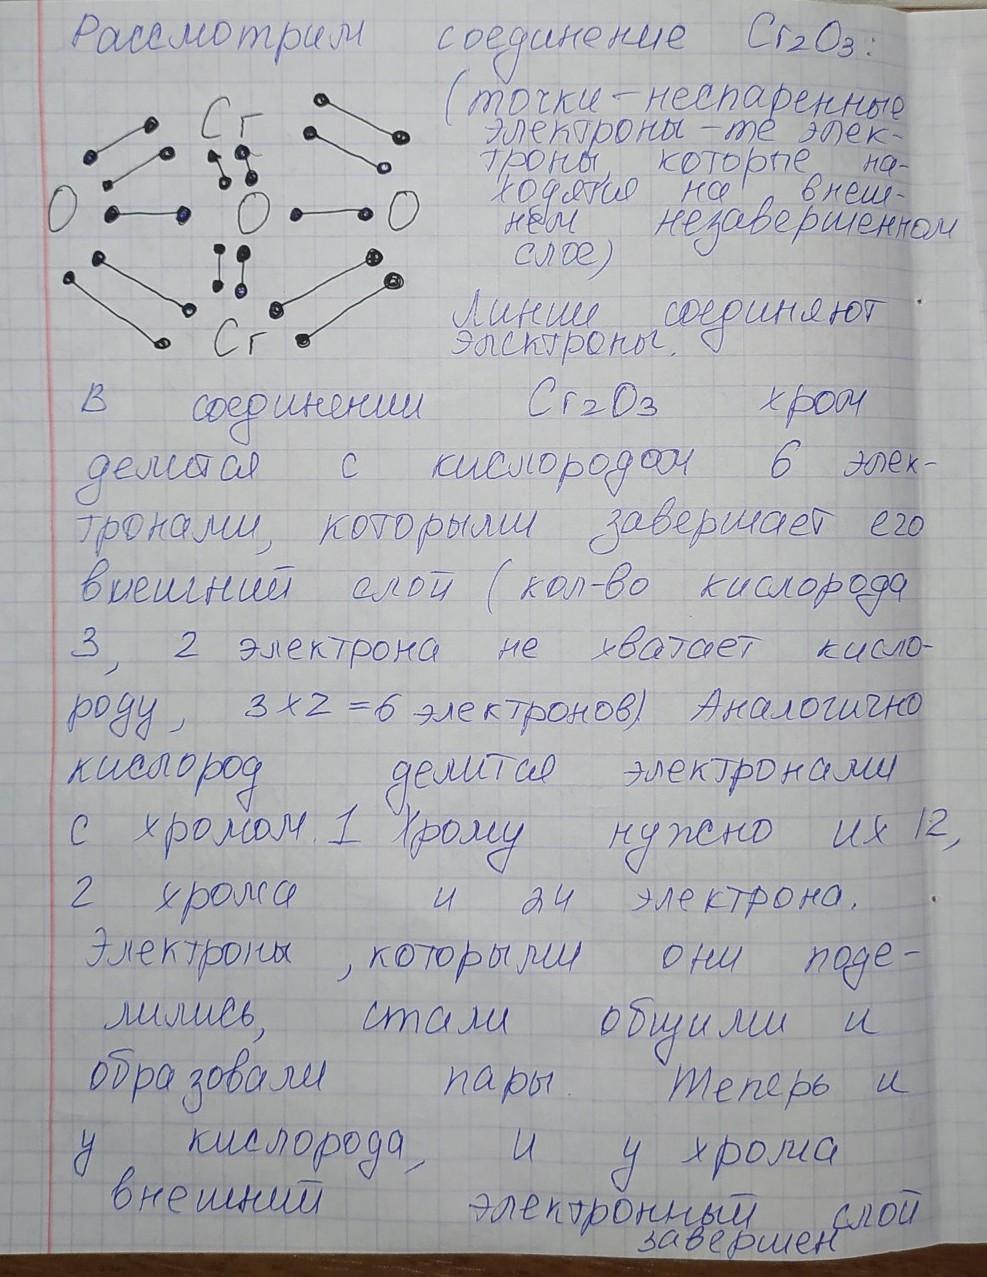 Рассмотрим соединение Cr2O3:
(точки – неспаренные
электроны – те элек-
троны, которые на-
ходятся на внеш-
нем незавершенном
слое)
Cr
O O O
Cr
Линии соединяют
электроны.
В соединении Cr2O3 хром
делится с кислородом 6 элек-
тронами, которыми завершает его
внешний слой (кол-во кислорода
3, 2 электрона не хватает кисло-
роду, 3×2=6 электронов) Аналогично
кислород делится электронами
с хромом. 1 Хрому нужно их 12,
2 хрома и 24 электрона.
Электроны, которыми они поде-
лились, стали общими и
образовали пары. Теперь и
у кислорода, и у хрома
внешний электронный слой
завершен